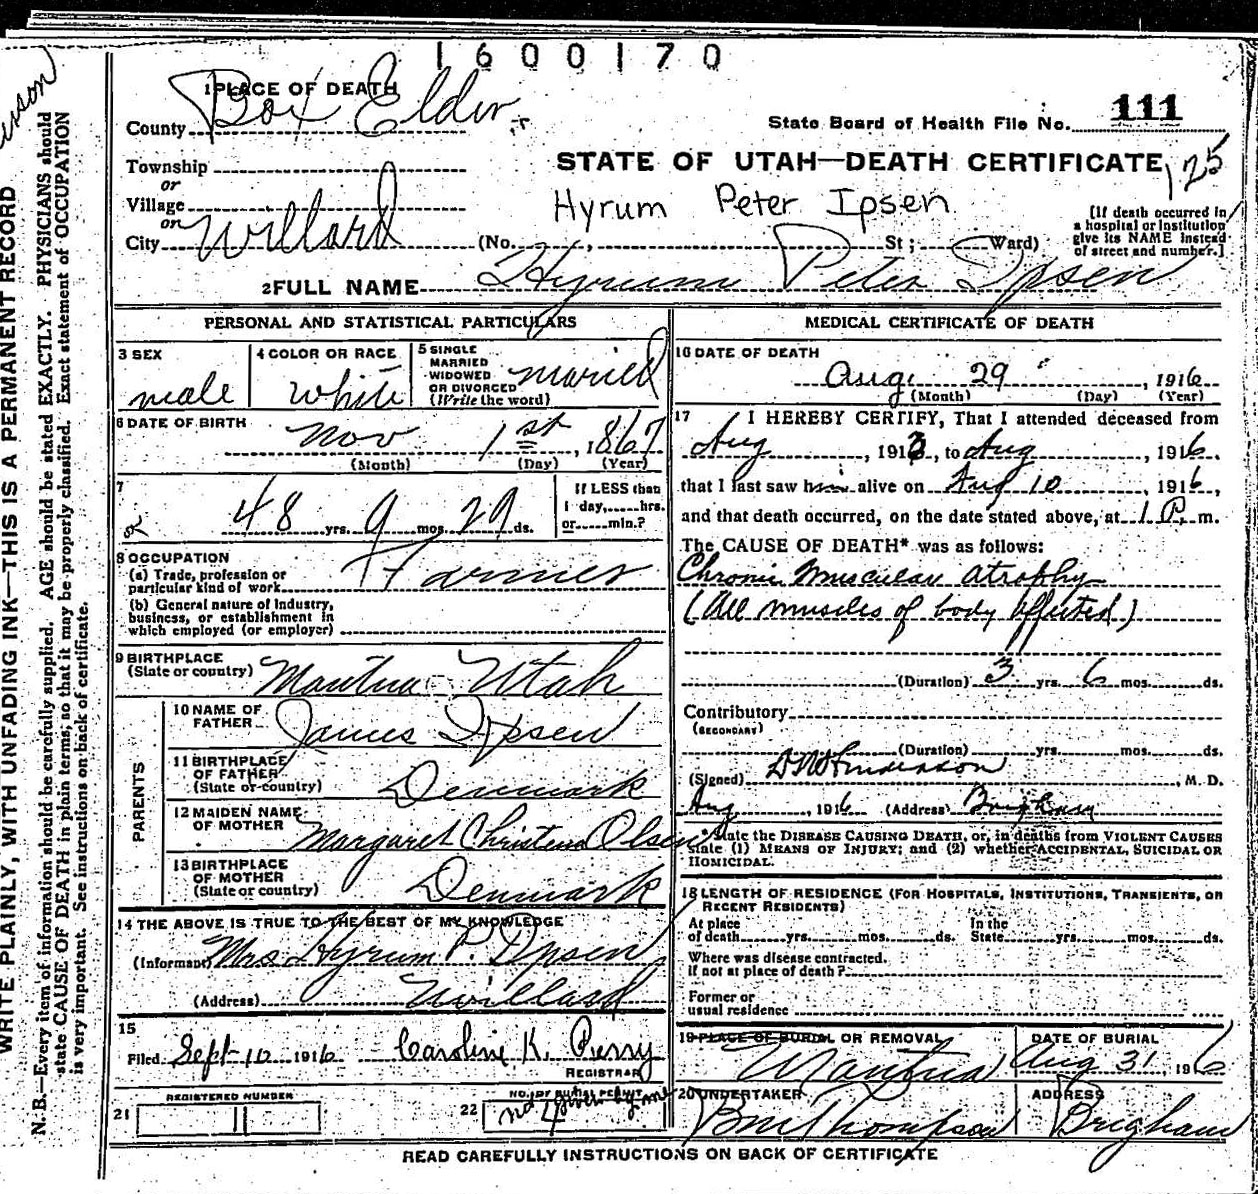 1600170
1 PLACE OF DEATH
County Box Elder
State Board of Health File No. 111
Township
or
Village
or
City Willard
STATE OF UTAH—DEATH CERTIFICATE 125
Hyrum Peter Ipsen
(No. , St ; Ward)
[If death occurred in
a hospital or institution
give its NAME instead
of street and number.]
2 FULL NAME Hyrum Peter Ipsen
PERSONAL AND STATISTICAL PARTICULARS
3 SEX
male
4 COLOR OR RACE
White
5 SINGLE
MARRIED
WIDOWED
OR DIVORCED
(Write the word)
maried
6 DATE OF BIRTH
Nov 1st, 1867
(Month) (Day) (Year)
7
48 yrs. 9 mos. 29 ds.
If LESS than
1 day, hrs.
or min.?
8 OCCUPATION
(a) Trade, profession or
particular kind of work Farmer
(b) General nature of industry,
business, or establishment in
which employed (or employer)
9 BIRTHPLACE
(State or country) Mantua Utah
PARENTS
10 NAME OF
FATHER James Ipsen
11 BIRTHPLACE
OF FATHER
(State or country) Denmark
12 MAIDEN NAME
OF MOTHER Margaret Christena Olsen
13 BIRTHPLACE
OF MOTHER
(State or country) Denmark
14 THE ABOVE IS TRUE TO THE BEST OF MY KNOWLEDGE
(Informant) Mrs Hyrum P. Ipsen
(Address) Willard
15
Filed Sept 10 1916 Caroline K. Perry
REGISTRAR
21 REGISTERED NUMBER
22 NO. OF BURIAL PERMIT
not given by me
4
MEDICAL CERTIFICATE OF DEATH
16 DATE OF DEATH
Aug. 29, 1916
(Month) (Day) (Year)
17 I HEREBY CERTIFY, That I attended deceased from
Aug, 1913, to Aug, 1916.
that I last saw him alive on Aug 10, 1916,
and that death occurred, on the date stated above, at 1 P. m.
The CAUSE OF DEATH* was as follows:
Chronic Muscular Atrophy
(All muscles of body affected)
(Duration) 3 yrs. 6 mos. ds.
Contributory
(SECONDARY)
(Duration) yrs. mos. ds.
(Signed) , M. D.
Aug, 1916 (Address) Brigham
* State the DISEASE CAUSING DEATH, or, in deaths from VIOLENT CAUSES
state (1) MEANS OF INJURY; and (2) whether ACCIDENTAL, SUICIDAL OR
HOMICIDAL.
18 LENGTH OF RESIDENCE (FOR HOSPITALS, INSTITUTIONS, TRANSIENTS, OR
RECENT RESIDENTS)
At place
of death yrs. mos. ds.
In the
State yrs. mos. ds.
Where was disease contracted,
if not at place of death?
Former or
usual residence
19 PLACE OF BURIAL OR REMOVAL
Mantua
DATE OF BURIAL
Aug 31, 1916
20 UNDERTAKER
Thompson
ADDRESS
Brigham
READ CAREFULLY INSTRUCTIONS ON BACK OF CERTIFICATE
WRITE PLAINLY, WITH UNFADING INK—THIS IS A PERMANENT RECORD
N.B.—Every item of information should be carefully supplied. AGE should be stated EXACTLY. PHYSICIANS should
state CAUSE OF DEATH in plain terms, so that it may be properly classified. Exact statement of OCCUPATION
is very important. See instructions on back of certificate.